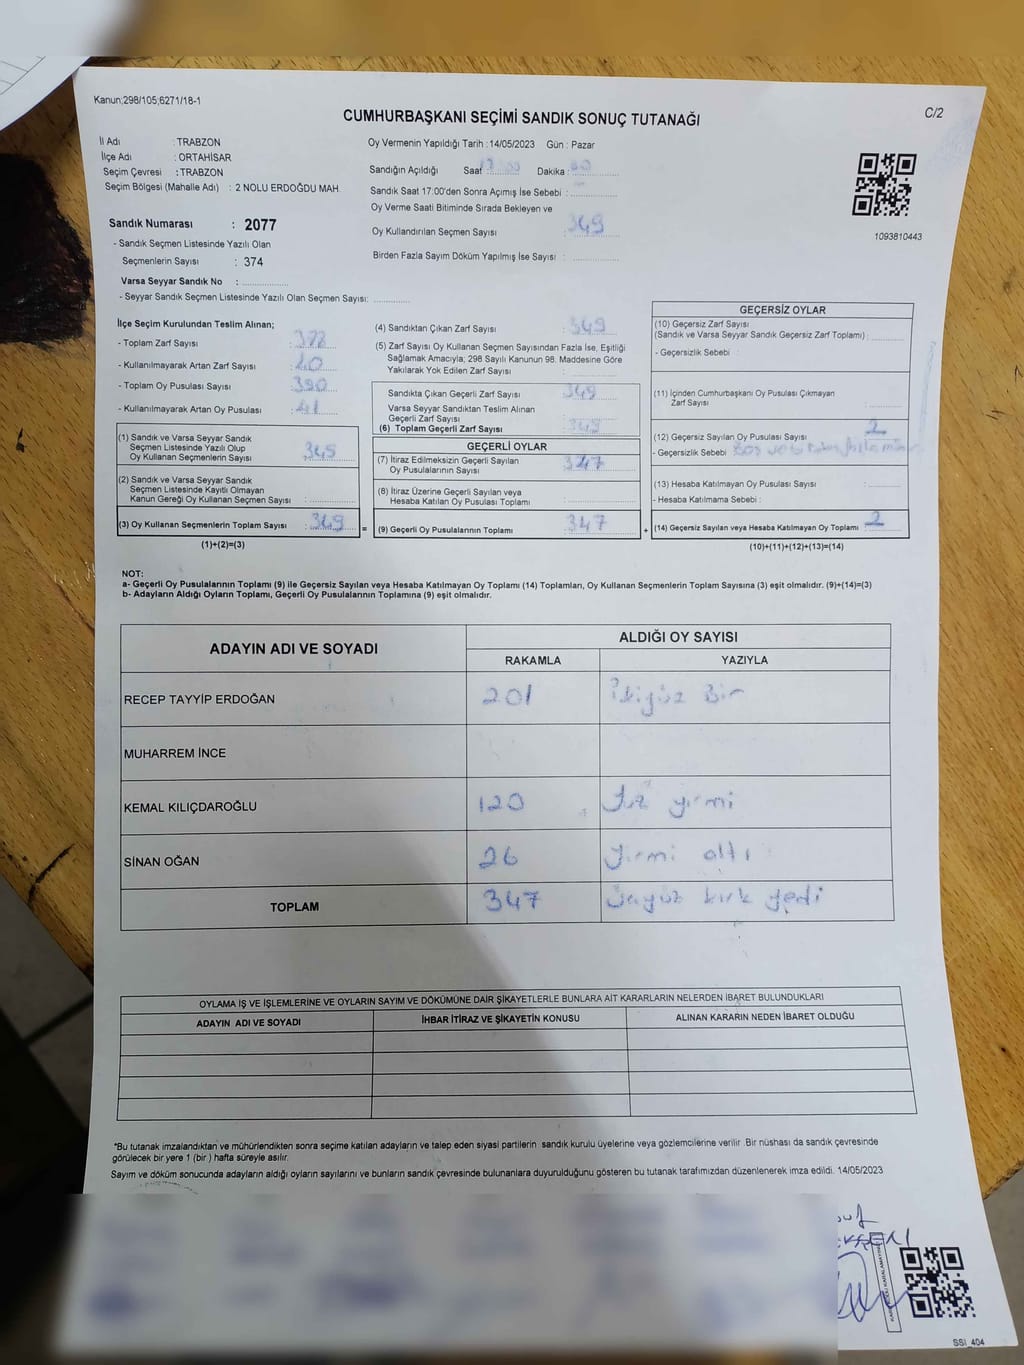 Kanun;298/105;6271/18-1
C/2
CUMHURBAŞKANI SEÇİMİ SANDIK SONUÇ TUTANAĞI
İl Adı : TRABZON
İlçe Adı : ORTAHİSAR
Seçim Çevresi : TRABZON
Seçim Bölgesi (Mahalle Adı) : 2 NOLU ERDOĞDU MAH.
Sandık Numarası : 2077
- Sandık Seçmen Listesinde Yazılı Olan
Seçmenlerin Sayısı : 374
Varsa Seyyar Sandık No :
- Seyyar Sandık Seçmen Listesinde Yazılı Olan Seçmen Sayısı:
Oy Vermenin Yapıldığı Tarih : 14/05/2023 Gün : Pazar
Sandığın Açıldığı Saat : Dakika :
Sandık Saat 17:00'den Sonra Açımış İse Sebebi :
Oy Verme Saati Bitiminde Sırada Bekleyen ve
Oy Kullandırılan Seçmen Sayısı : 349
Birden Fazla Sayım Döküm Yapılmış İse Sayısı :
1093810443
İlçe Seçim Kurulundan Teslim Alınan;
- Toplam Zarf Sayısı : 372
- Kullanılmayarak Artan Zarf Sayısı : 20
- Toplam Oy Pusulası Sayısı : 390
- Kullanılmayarak Artan Oy Pusulası : 41
(1) Sandık ve Varsa Seyyar Sandık
Seçmen Listesinde Yazılı Olup
Oy Kullanan Seçmenlerin Sayısı : 345
(2) Sandık ve Varsa Seyyar Sandık
Seçmen Listesinde Kayıtlı Olmayan
Kanun Gereği Oy Kullanan Seçmen Sayısı :
(3) Oy Kullanan Seçmenlerin Toplam Sayısı : 349 =
(1)+(2)=(3)
(4) Sandıktan Çıkan Zarf Sayısı : 349
(5) Zarf Sayısı Oy Kullanan Seçmen Sayısından Fazla İse, Eşitliği
Sağlamak Amacıyla; 298 Sayılı Kanunun 98. Maddesine Göre
Yakılarak Yok Edilen Zarf Sayısı :
Sandıkta Çıkan Geçerli Zarf Sayısı : 349
Varsa Seyyar Sandıktan Teslim Alınan
Geçerli Zarf Sayısı :
(6) Toplam Geçerli Zarf Sayısı : 349
GEÇERLİ OYLAR
(7) İtiraz Edilmeksizin Geçerli Sayılan
Oy Pusulalarının Sayısı : 347
(8) İtiraz Üzerine Geçerli Sayılan veya
Hesaba Katılan Oy Pusulası Toplamı :
(9) Geçerli Oy Pusulalarının Toplamı : 347 +
GEÇERSİZ OYLAR
(10) Geçersiz Zarf Sayısı
(Sandık ve Varsa Seyyar Sandık Geçersiz Zarf Toplamı) :
- Geçersizlik Sebebi :
(11) İçinden Cumhurbaşkanı Oy Pusulası Çıkmayan
Zarf Sayısı :
(12) Geçersiz Sayılan Oy Pusulası Sayısı : 2
- Geçersizlik Sebebi
(13) Hesaba Katılmayan Oy Pusulası Sayısı :
- Hesaba Katılmama Sebebi :
(14) Geçersiz Sayılan veya Hesaba Katılmayan Oy Toplamı : 2
(10)+(11)+(12)+(13)=(14)
NOT:
a- Geçerli Oy Pusulalarının Toplamı (9) ile Geçersiz Sayılan veya Hesaba Katılmayan Oy Toplamı (14) Toplamları, Oy Kullanan Seçmenlerin Toplam Sayısına (3) eşit olmalıdır. (9)+(14)=(3)
b- Adayların Aldığı Oyların Toplamı, Geçerli Oy Pusulalarının Toplamına (9) eşit olmalıdır.
ADAYIN ADI VE SOYADI ALDIĞI OY SAYISI
RAKAMLA YAZIYLA
RECEP TAYYİP ERDOĞAN 201 İkiyüz Bir
MUHARREM İNCE
KEMAL KILIÇDAROĞLU 120 Yüz yirmi
SİNAN OĞAN 26 Yirmi altı
TOPLAM 347 üçyüz kırk yedi
OYLAMA İŞ VE İŞLEMLERİNE VE OYLARIN SAYIM VE DÖKÜMÜNE DAİR ŞİKAYETLERLE BUNLARA AİT KARARLARIN NELERDEN İBARET BULUNDUKLARI
ADAYIN ADI VE SOYADI İHBAR İTİRAZ VE ŞİKAYETİN KONUSU ALINAN KARARIN NEDEN İBARET OLDUĞU
*Bu tutanak imzalandıktan ve mühürlendikten sonra seçime katılan adayların ve talep eden siyasi partilerin sandık kurulu üyelerine veya gözlemcilerine verilir. Bir nüshası da sandık çevresinde
görülecek bir yere 1 (bir) hafta süreyle asılır.
Sayım ve döküm sonucunda adayların aldığı oyların sayılarını ve bunların sandık çevresinde bulunanlara duyurulduğunu gösteren bu tutanak tarafımızdan düzenlenerek imza edildi. 14/05/2023
SSİ_404